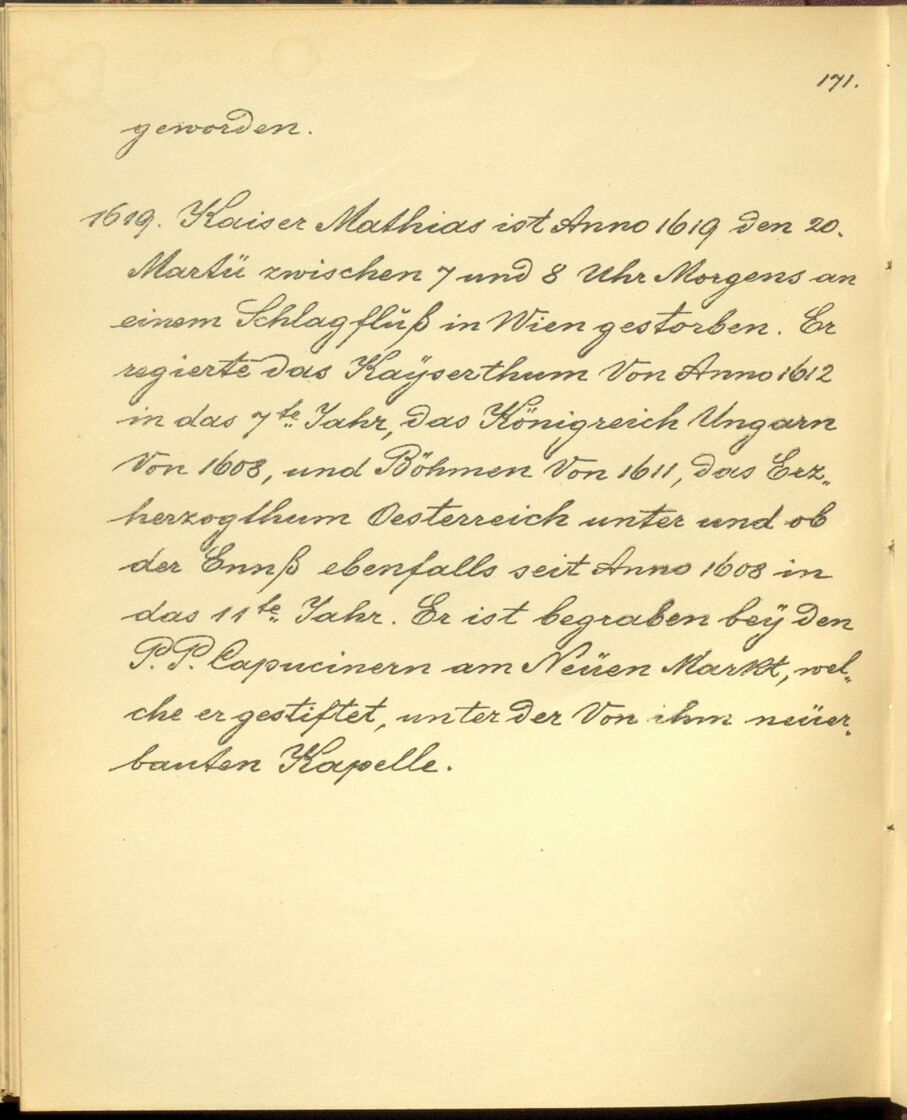 171.
geworden.
1619. Kaiser Mathias ist Anno 1619 den 20.
Martii zwischen 7 und 8 Uhr Morgens an
einem Schlagflúß in Wien gestorben. Er
regierte das Kaÿserthum Von Anno 1612
in das 7te. Jahr, das Königreich Ungarn
Von 1608, und Böhmen Von 1611, das Erz„
herzogthum Oesterreich unter und ob
der Ennß ebenfalls seit Anno 1608 in
das 11te. Jahr. Er ist begraben beÿ den
P.P. Capucinern am Neüen Markt, wel„
che er gestiftet, unter der Von ihm neüer„
bauten Kapelle.